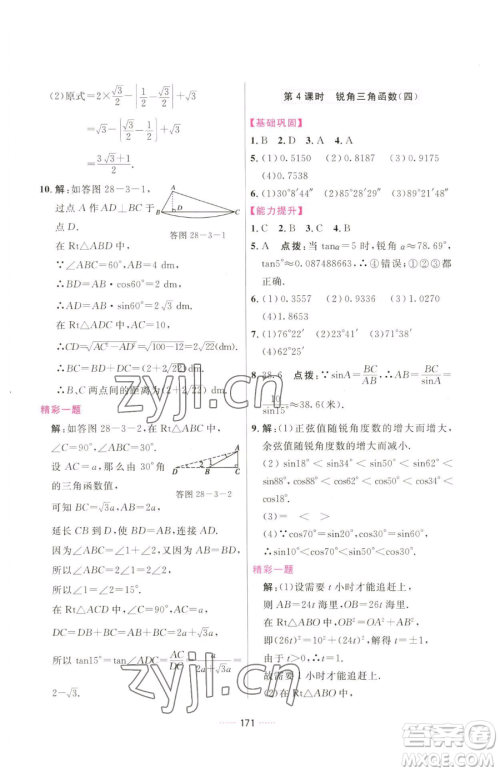 (2)原式=2×√3/2-|√3/2-1|+|1/2-√3/2|
=√3-|1/2-√3/2|+√3/2
=(3√3+1)/2.
10. 解:如答图 28-3-1,
过点 A 作 AD⊥BC 于
点 D.
答图 28-3-1
在 Rt△ABD 中,
∵∠ABC=60°,AB=4 dm,
∴BD=AB·cos60°=2 dm,
∴AD=AB·sin60°=2√3 dm,
在 Rt△ADC 中,AC=10,
∴CD=√(AC²-AD²)=√(100-12)=2√22(dm),
∴B、C两点间的距离为(2+2√22)dm.
精彩一题
解:如答图 28-3-2,
在 Rt△ABC 中,
∠C=90°,∠1=30°.
设 AC=a,那么由 30°
的三角函数值,
答图 28-3-2
可知 BC=√3a,AB=2a,
延长 CB 到 D,使 BD=AB,连接 AD.
因为∠ABC=∠1+∠2=30°,
所以∠1=∠2=15°.
在 Rt△ACD 中,∠ADC=15°,AC=a,
DC=DB+BC=AB+BC=2a+√3a,
所以 tan15°=tan∠ADC=AC/DC=a/(2a+√3a)=
2-√3.
第 4 课时 锐角三角函数(四)
【基础巩固】
1. B 2. D 3. A 4. A
5. (1)0.5150 (2)0.8187 (3)0.9175
(4)0.7538
6. (1)30°8′44″ (2)85°8′44″ (3)89°21′48″
【能力提升】
1. C 2. B 3. D 4. A
5. A 点拨:当 tanα=5 时,锐角 α≈78.69°,
tan5°≈0.087488663,∴④错误;①②③都
正确.
6. (1)0.3557 (2)0.9301 (3)0.3697
(4)1.8653
7. (1)76°22′ (2)23°54′ (3)38°16′
(4)62°25′
8. 38.6 点拨:∵sinA=BC/AB,∴AB=BC/sinA=
10/sin15°≈38.6(米).
9. 解:(1)正弦值随锐角度数的增大而增大,
余弦值随锐角度数的增大而减小.
(2)sin18°<sin34°<sin50°<sin62°<
sin88°,cos88°<cos62°<cos50°<cos34°<
cos18°.
(3)= < >
(4)∵cos70°=sin20°,cos30°=sin60°,
∴sin10°<cos70°<sin50°<cos30°.
精彩一题
解:(1)设需要 t 小时才能追赶上,
则 AB=24t 海里,OB=26t 海里,
在 Rt△AOB 中,OB²=OA²+AB²,
即(26t)²=10²+(24t)²,解得 t=±1.
由于 t>0,∴t=1.
故需要 1 小时才能追赶上.
(2)在 Rt△AOB 中,
171
zyjl.cn
zyjl.cn
作业精灵